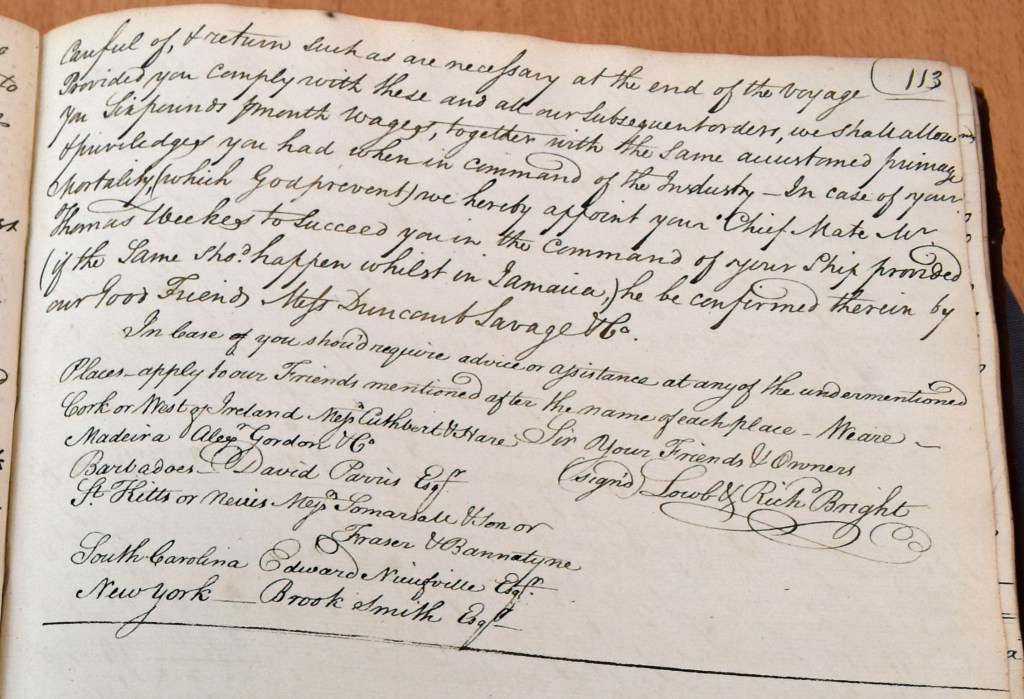 113
Careful of, & return such as are necessary at the end of the voyage
Provided you comply with these and all our Subsequent orders, we shall allow
you Six pounds p month wages, together with the same accustomed primage
& priviledges you had when in command of the Industry – In case of your
Mortality, (which God prevent) we hereby appoint your Chief Mate Mr
Thomas Weekes to Succeed you in the Command of your Ship provided
(if the Same Shod. happen whilst in Jamaica,) he be confirmed therein by
our Good Friends Messs Duncomb Savage & Co.
In Case of you shoud require advice or assistance at any of the undermentioned
Places – apply to our Friends mentioned after the name of each place – We are –
Cork or West of Ireland Messrs Cuthbert & Hare Sir Your Friends & Owners
Madeira Alexr Gordon & Co (signd) Lowb & Richd Bright
Barbadoes – David Parris Esqr
St. Kitts or Nevies Messrs Somarsall & Son or
Fraser & Bannatyne
South Carolina Edward Nieufville Esqr.
New York – Brook Smith Esqr